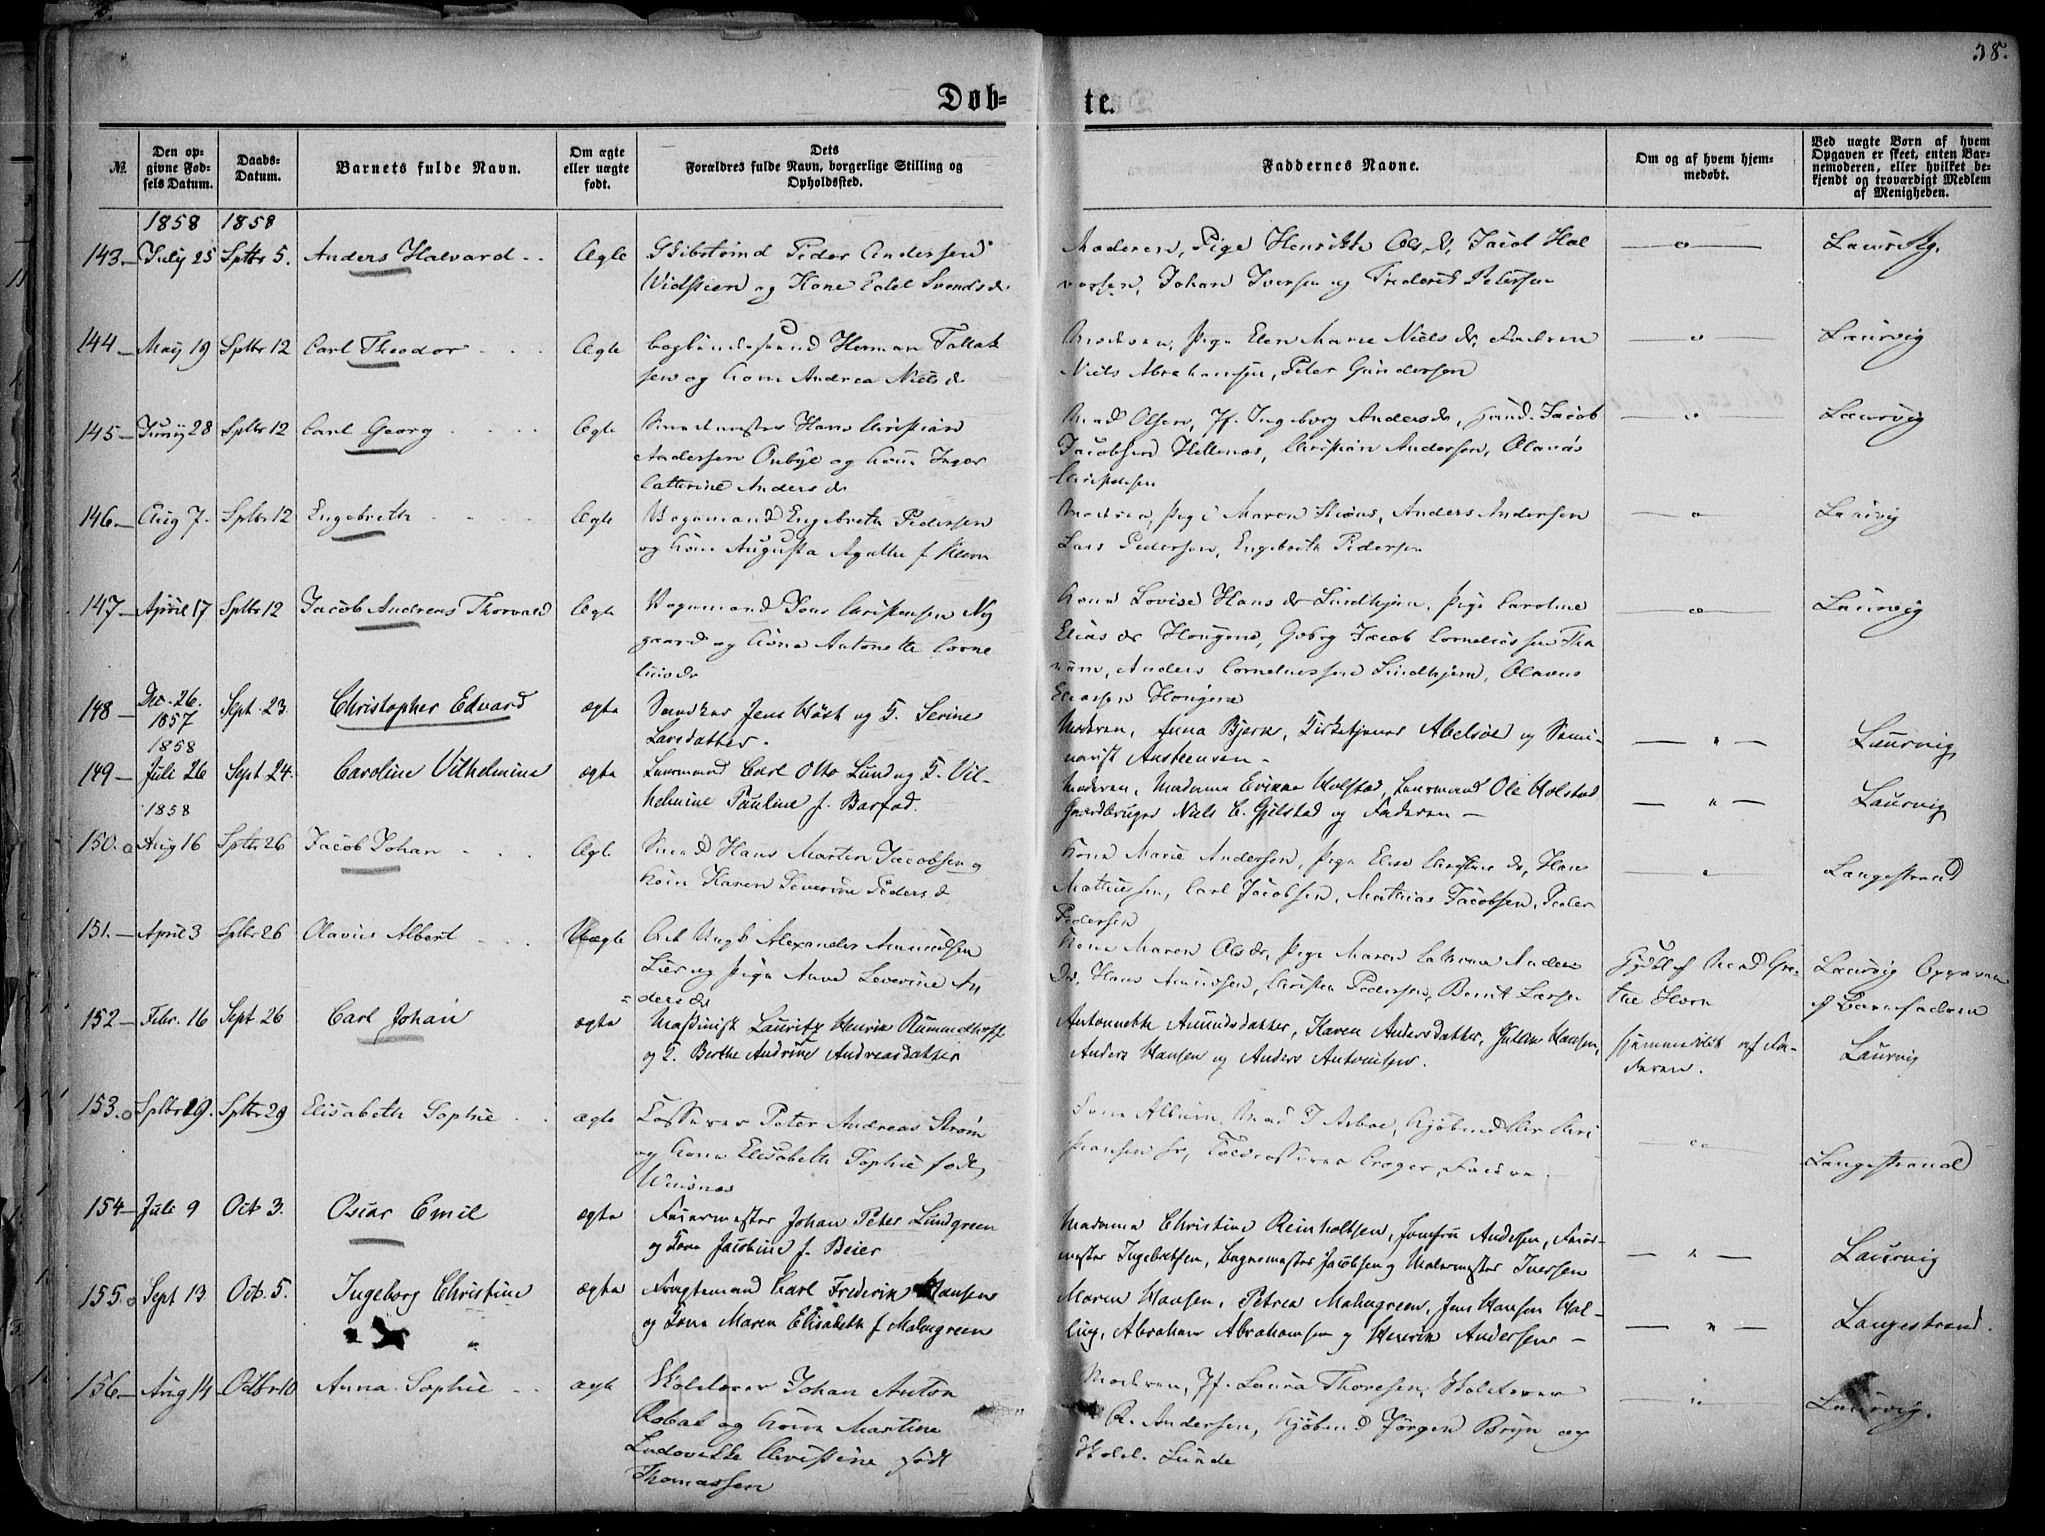 38.
Døb-
te.
№
Den op-
givne Fød-
sels Datum.
Daabs-
Datum.
Barnets fulde Navn.
Om ægte
eller uægte
født.
Dets
Forældres fulde Navn, borgerlige Stilling og
Opholdssted.
Faddernes Navne.
Om og af hvem hjem-
medøbt.
Ved uægte Børn af hvem
Opgaven er skeet, enten Bar-
nemoderen, eller hvilket be-
kjendt og troværdigt Medlem
af Menigheden.
1858 1858
143 July 25 Sptbr 5. Anders Halvard Ægte Skibstømd Peder Andersen
Vidstien og Kone Edel Svends d
Moderen, Pige Henrikke Ols d, Jacob Hal
vorsen, Johan Iversen og Frederik Petersen
Laurvig.
144 May 19 Sptbr 12 Carl Theodor Ægte Herman Tollak
sen og Kone Andrea Niels d
Moderen, Pige Elen Marie Niels d, Faderen
Niels Abrahamsen, Peter Gundersen
Laurvig
145 Juny 28 Sptbr 12 Carl Georg Ægte Hans Christian
Andersen Onbye og Kone Inger
Catterine Anders d
Mad Olsen, Jf. Ingeborg Anders d, Jacob
Jacobsen Hellenæs, Christian Andersen, Olaves
Christensen
Laurvig
146 Aug 7. Sptbr 12 Engebreth Ægte Vognmand Engebreth Pedersen
og Kone Augusta Agathe f
Moderen, Pige Maren Anders Andersen
Lars Pedersen, Engebreth Pedersen
Laurvig
147 April 17 Sptbr 12 Jacob Andreas Thorvald Ægte Vognmand Jens Christensen Ny
gaard og Kone Antonette Corne
lius d
Kone Lovise Hans d Lindhjem, Pige Caroline
Elias d Hougene, Jacob Corneliussen Tha
num, Anders Corneliussen Lindhjem, Olavus
Eliassen Hougene
Laurvig
148 Dec. 26. 1857 Sept. 23. Christopher Edvard ægte Snedker Jens Høeh og K. Serine
Larsdatter.
Moderen, Anna Bjerk, Kirketjener Abelsøe og Semi-
narist Austeensen
Laurvig
1858
149 Juli 26 Sept 24. Caroline Vilhelmine ægte Laurmand Carl Otto Lund og K. Vil-
helmine Pauline f. Barfod.
Moderen, Madame Evine Holstad, Laurmand Ole Holstad
Gaardbruger Niels C. Gjelstad og Faderen
Laurvig
1858
150. Aug 16 Sptbr 26 Jacob Johan Ægte Smed Hans Martin Jacobsen og
Kone Karen Severine Peders d
Kone Marie Andersen, Pige Else Christine d, Hans
Mathiesen, Carl Jacobsen, Mathias Jacobsen, Peder
Pedersen
Langestrand
151. April 3 Sptbr 26 Olavus Albert Uægte Arb Ungk Alexander Amundsen
Lie og Pige Anne Severine An
ders d
Kone Maren Ols d, Pige Maren Cathrine Anders
d, Hans Amundsen, Christen Pedersen, Bernt Larsen
Hjdbt af Mad Gre-
the Horn
Laurvig Opgaven
af Barnefaderen
152 Febr. 16 Sept 26 Carl Johan ægte Maskinist Lauritz Henrik Rummelhoff
og K. Berthe Andrine Andreasdatter
Antonnette Amundsdatter, Karen Andersdatter, Julian Hansen,
Anders Hansen og Anders Antonisen.
hjemmedøbt af Fa-
deren.
Laurvig
153. Sptbr 29. Sptbr 29 Elisabeth Sophie ægte Casserer Peter Andreas Strøm
og Kone Elisabeth Sophie født
Album, Mad Arboe, Kjøbmd Chri
stiansen sr, Toldcasserer Crøger, Faderen.
Langestrand
154 Juli 9 Oct 3. Oscar Emil ægte Feiermester Johan Peter Lundgreen
og Kone Jacobine f. Beier
Madame Christine Reinholtsen, Jomfru Andersen, Feier-
mester Ingebretsen, Bagermester Jacobsen og Malermester Iversen
Laurvig
155. Sept 13. Oct. 5. Ingeborg Christine ægte Fragtemand Carl Frederik Hansen
og Kone Maren Elisabeth f Malmgreen
Maren Hansen, Petrea Malmgreen, Jens Hansen Hal-
ling, Abraham Abrahamsen og Henrik Andersen
Langestrand.
156 Aug 14 Octbr 10 Anna Sophie ægte Skolelærer Johan Anton
og Kone Martine
Ludovikke Christine født
Thomassen
Moderen, Jf. Laura Thoresen, Skolelærer
R. Andersen, Kjøbmd Jørgen Bryn og
Skolel. Lunde
Laurvig.